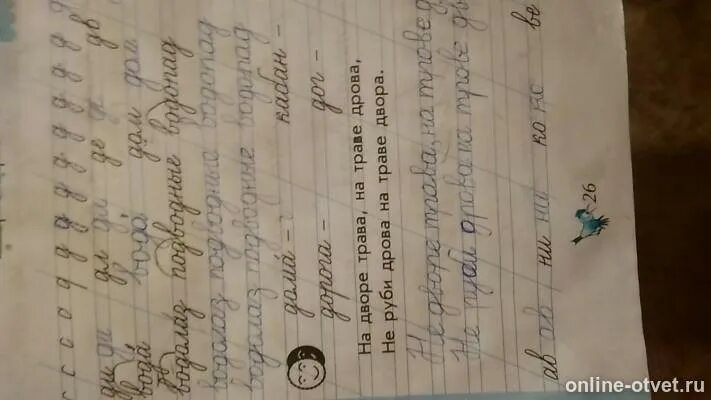 с с о о д д д д д д д д д
ди ди дл дл де де дв
вода вода дом дом
водолаз подводные водопад
водолаз подводные водопад
водолаз подводные водопад
дама – кабан –
дорога – дог –
На дворе трава, на траве дрова,
Не руби дрова на траве двора.
На дворе трава, на траве д
Не руби дрова на траве дв
ав ни ни ко ко ве
26
online-otvet.ru